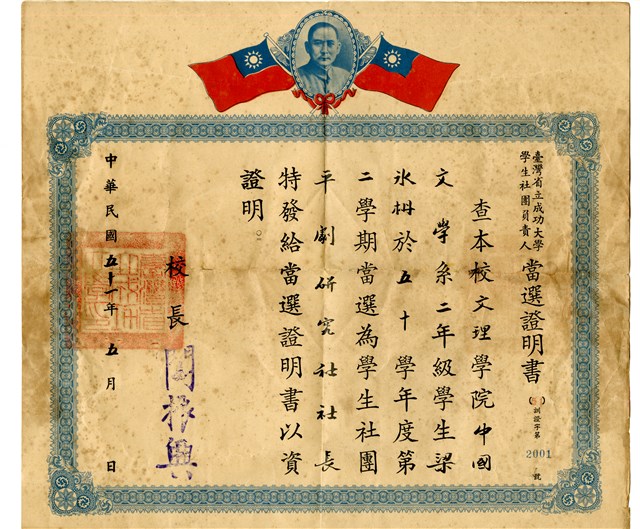 臺灣省立成功大學
學生社團負責人
當選證明書
訓證字第2001號
查本校文理學院中國
文學系二年級學生梁
冰枏於五十學年度第
二學期當選為學生社團
平劇研究社社長
特發給當選證明書以資
證明。
校長
閻振興
中華民國五十一年五月 日